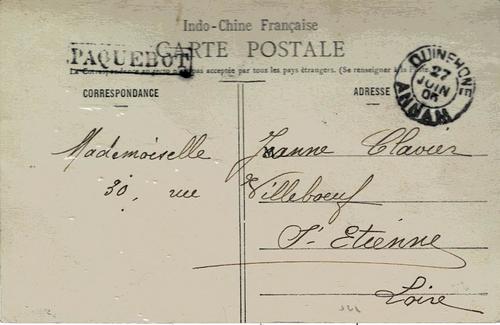 Indo-Chine Française
PAQUEBOT
CARTE POSTALE
La Correspondance au recto n'est pas acceptée par tous les pays étrangers. (Se renseigner à la Poste
QUINHONE
27
JUIN
06
ANNAM
CORRESPONDANCE
ADRESSE
Mademoiselle Jeanne Clavier
30, rue Villeboeuf
St Etienne
Loire